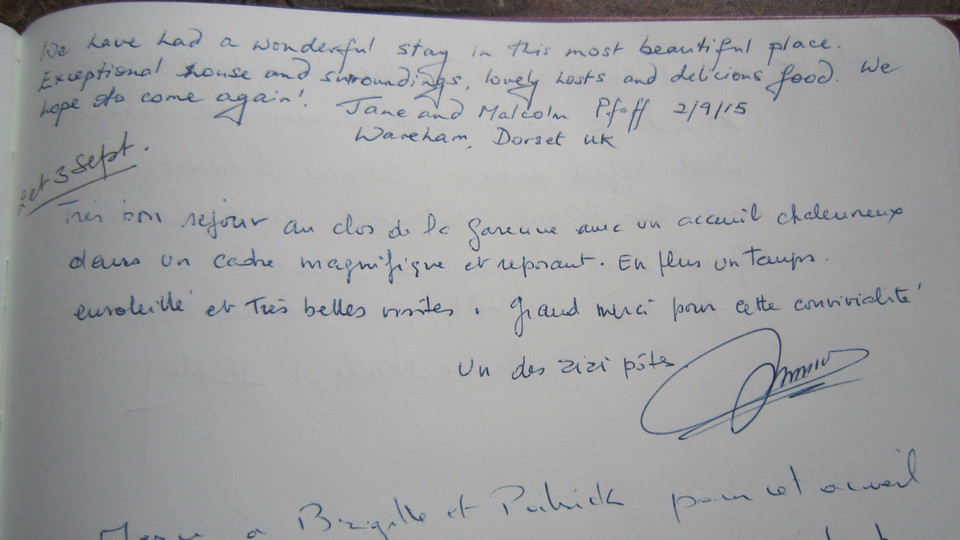 We have had a wonderful stay in this most beautiful place.
Exceptional house and surroundings, lovely hosts and delicious food. We
hope to come again! Jane and Malcolm Pfaff 2/9/15
Wareham, Dorset UK
2 et 3 Sept.
Très bon séjour au clos de la garenne avec un accueil chaleureux
dans un cadre magnifique et reposant. En plus un temps
ensoleillé et Très belles visites. Grand merci pour cette convivialité
Un des zizi pôtes
a Brigitte et Patrick pour cet accueil